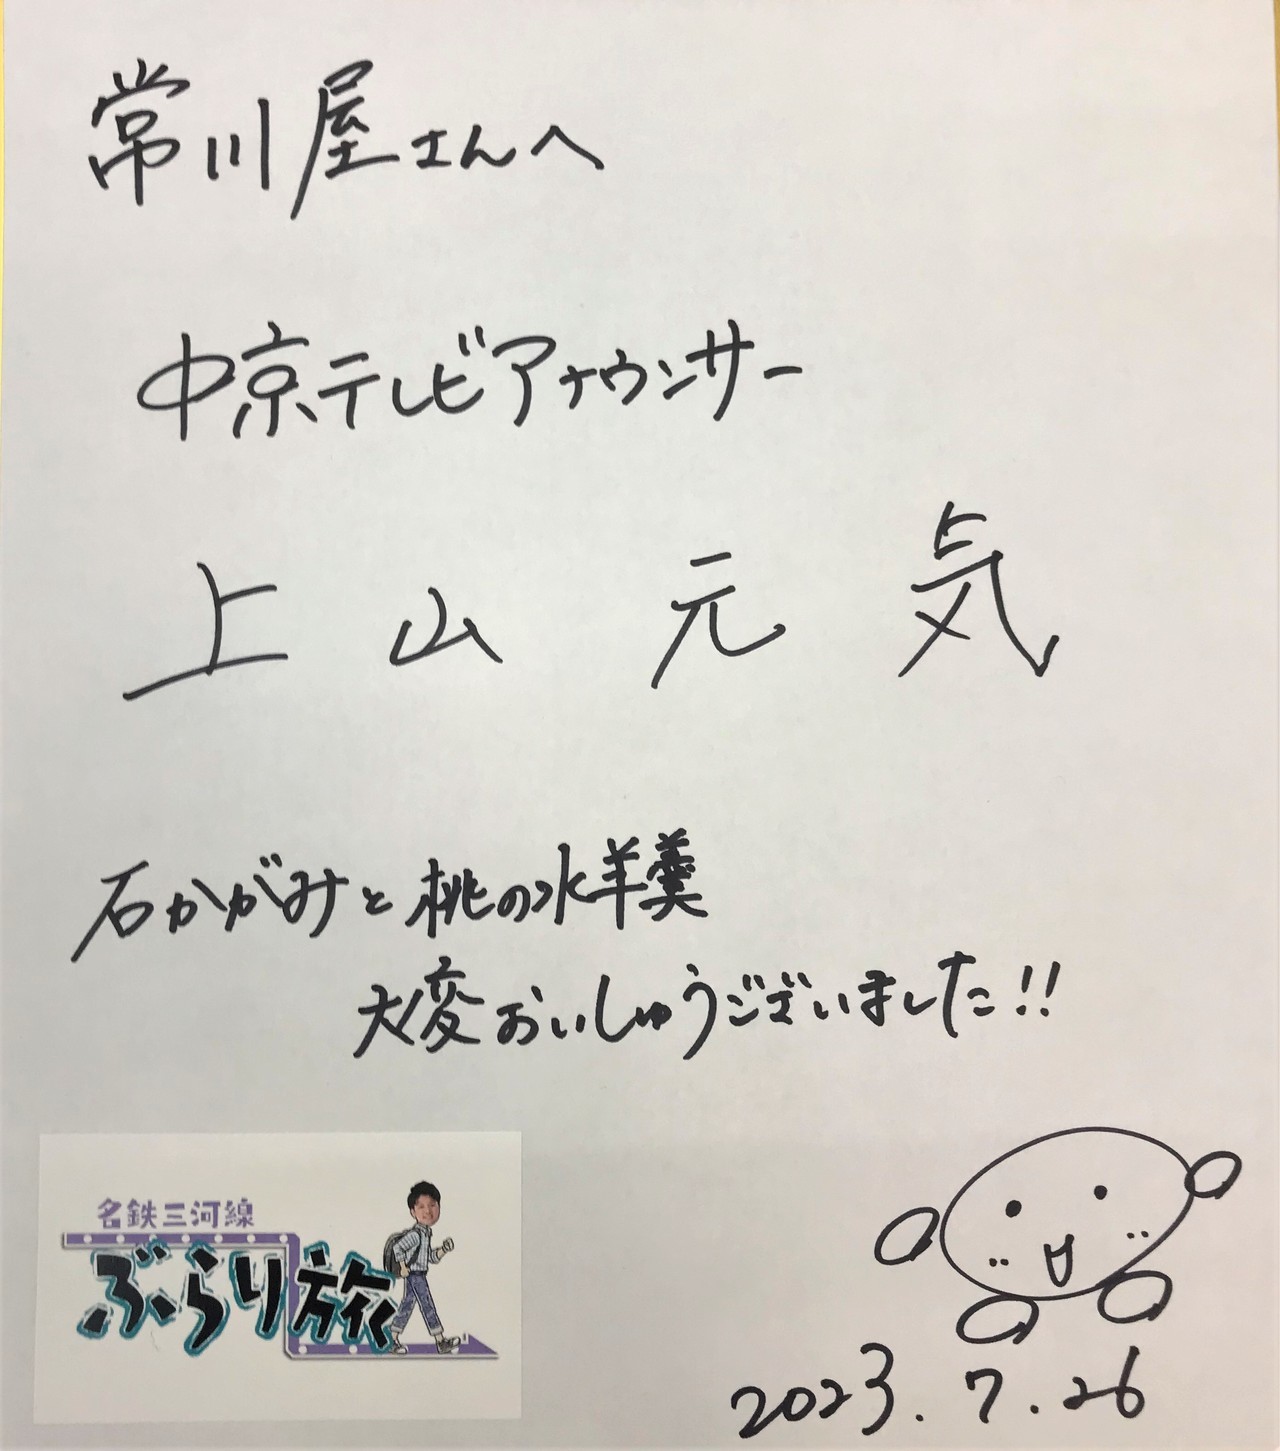 常川屋さんへ
中京テレビアナウンサー
上山元気
石かがみと桃の水羊羹
大変おいしゅうございました!!
名鉄三河線
ぶらり旅
2023.7.26